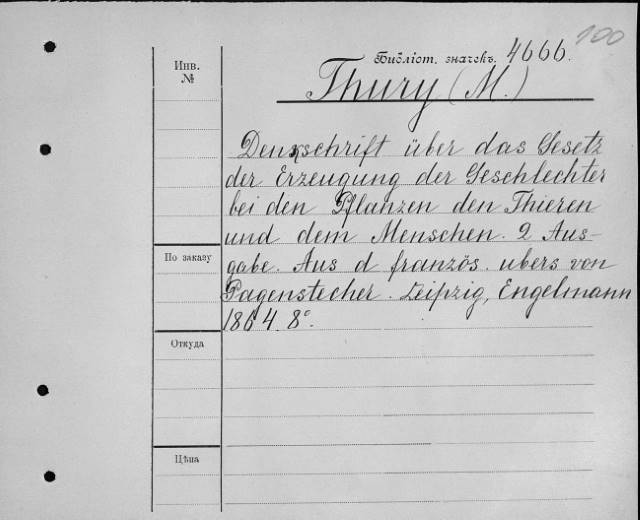 100
Библіот. значекъ. 4666.
Инв.
№
Thury (M.)
Denkschrift über das Gesetz
der Erzeugung der Geschlechter
bei den Pflanzen den Thieren
und dem Menschen. 2 Aus-
По заказу
gabe. Aus d französ. ubers von
Pagenstecher. Leipzig, Engelmann
1864. 8°.
Откуда
Цѣна